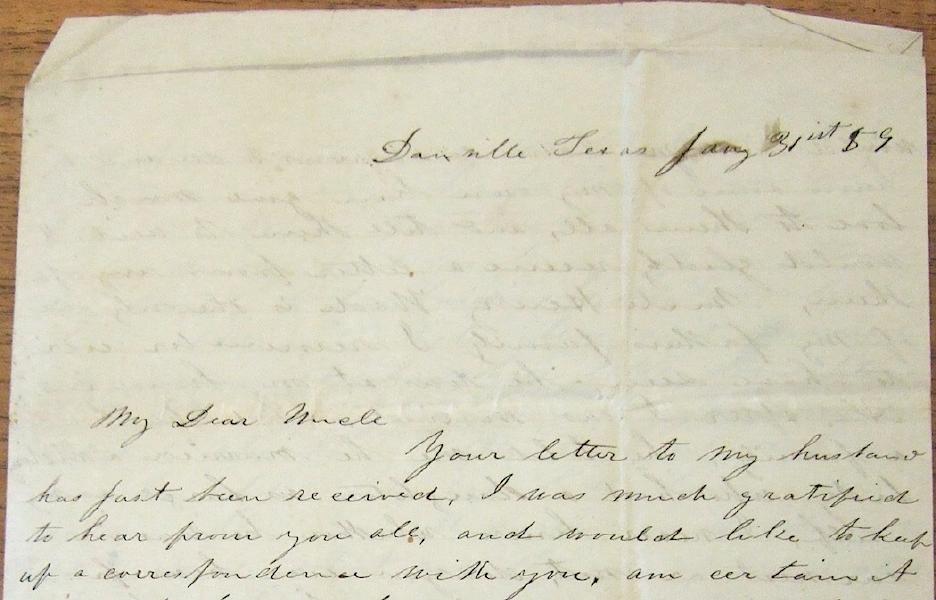 Danville Texas Jany 31st 59
My Dear Uncle
Your letter to my husband
has just been received, I was much gratified
to hear from you all, and would like to keep
up a correspondence with you, am certain it